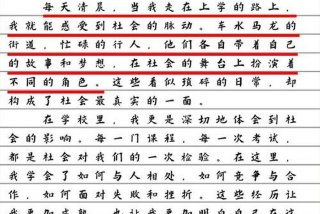 每天清晨，当我走在上学的路上，
我就能感受到社会的脉动。车水马龙的
街道，忙碌的行人，他们各自带着自己
的故事和梦想，在社会的舞台上扮演着
不同的角色。这些看似琐碎的日常，却
构成了社会最真实的一面。
在学校里，我更是深切地体会到社
会的影响。每一门课程，每一次考试，
都是社会对我们的一次检验。在这里，
我学会了如何与人相处，如何竞争与合
作，如何面对失败和挫折。这些经历让